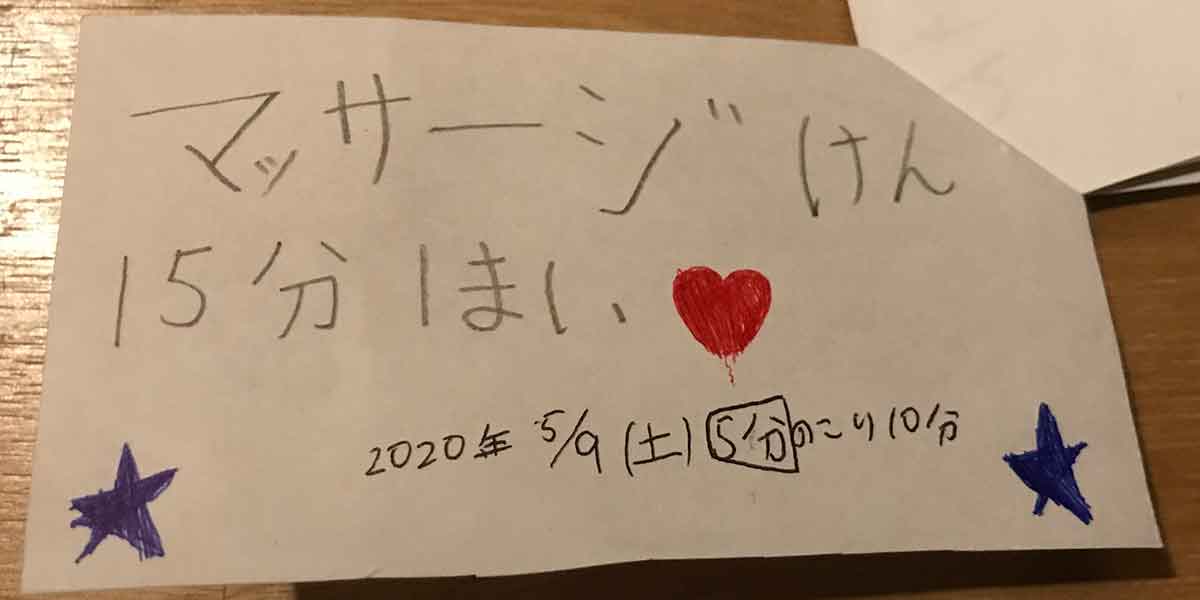 マッサージけん
15分1まい
2020年 5/9(土)5分のこり10分